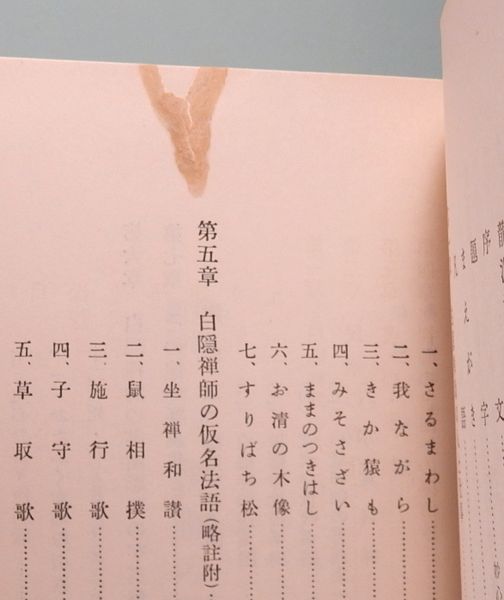 題
序
文
字
ま え が き
一、さるまわし
二、我ながら
三、きか猿も
四、みそさざい
五、ままのつきはし
六、お清の木像
七、すりばち松
第五章　白隠禅師の仮名法語（略註附）
一、坐禅和讃
二、鼠相撲
三、施行歌
四、子守歌
五、草取歌